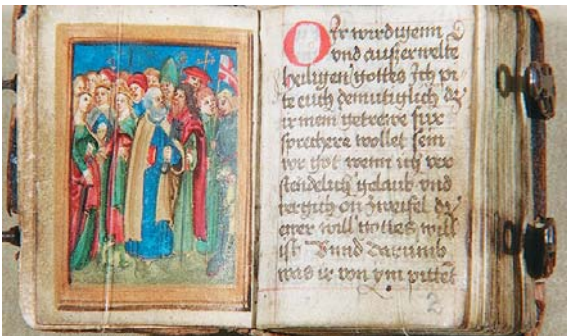 O Ir wirdigenn
vnd auserwelte
heiligen gottes Ich pi
te euch demutiglich dz
ir mein getrewe fur
sprechere wollet sein
vor got wenn ich ver
stendelich gelaub vnd
vergich on zweifel dz
ewer will gottes will
ist Vnnd darumb
was ir von ym pittet
2